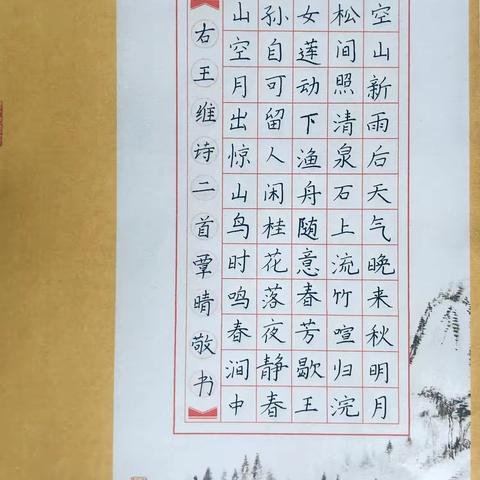 空山新雨后天气晚来秋明月
松间照清泉石上流竹喧归浣
女莲动下渔舟随意春芳歇王
孙自可留人闲桂花落夜静春
山空月出惊山鸟时鸣春涧中
右王维诗二首覃晴敬书